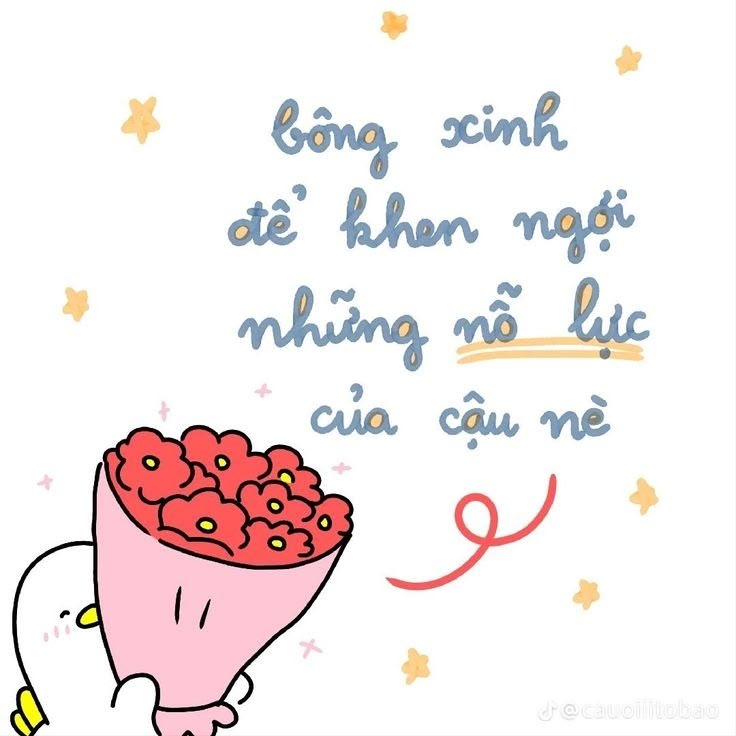 bông xinh
để khen ngợi
những nỗ lực
của cậu nè
@cauoilitobao